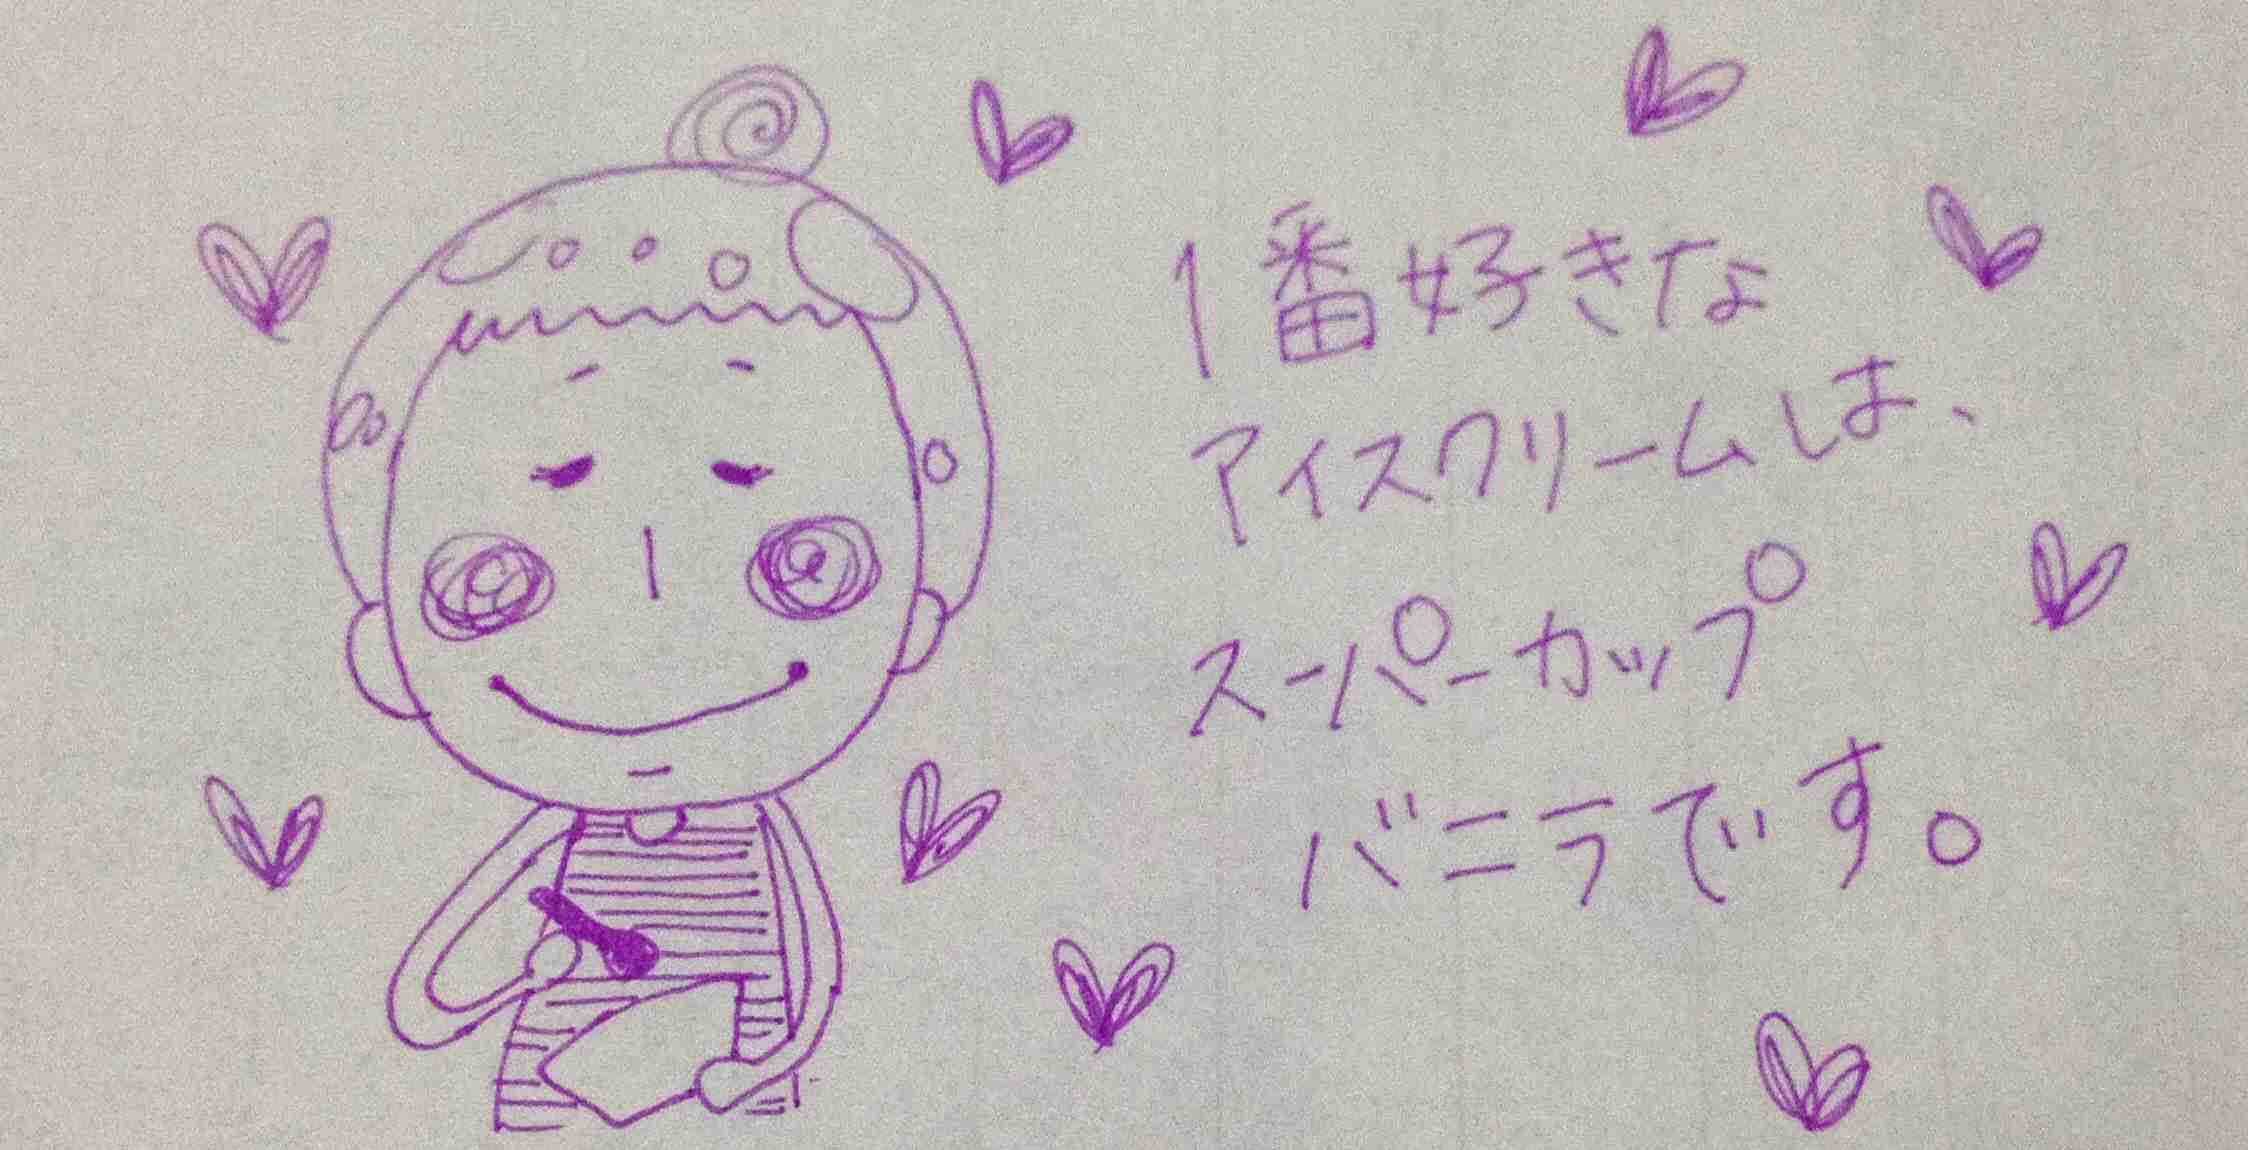 1番好きな
アイスクリームは、
スーパーカップ
バニラです。